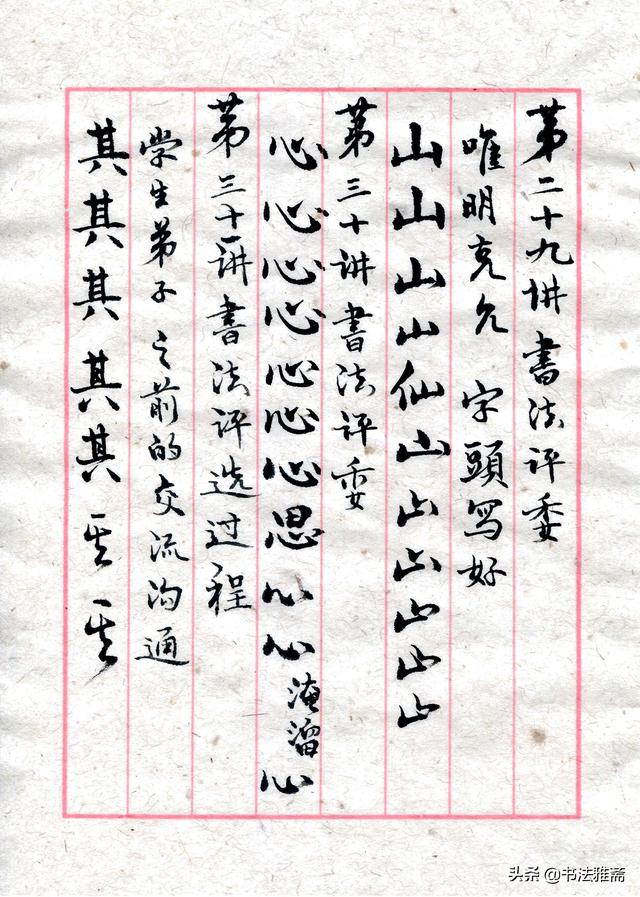 第二十九讲書法评委
唯明克允 字頭写好
山山山山仙山山山山山山
第三十讲書法评委
心心心心心心心思心心淹溜心
第三十一讲書法评选过程
学生弟子之前的交流沟通
其其其其其其其
头条 @书法雅斋